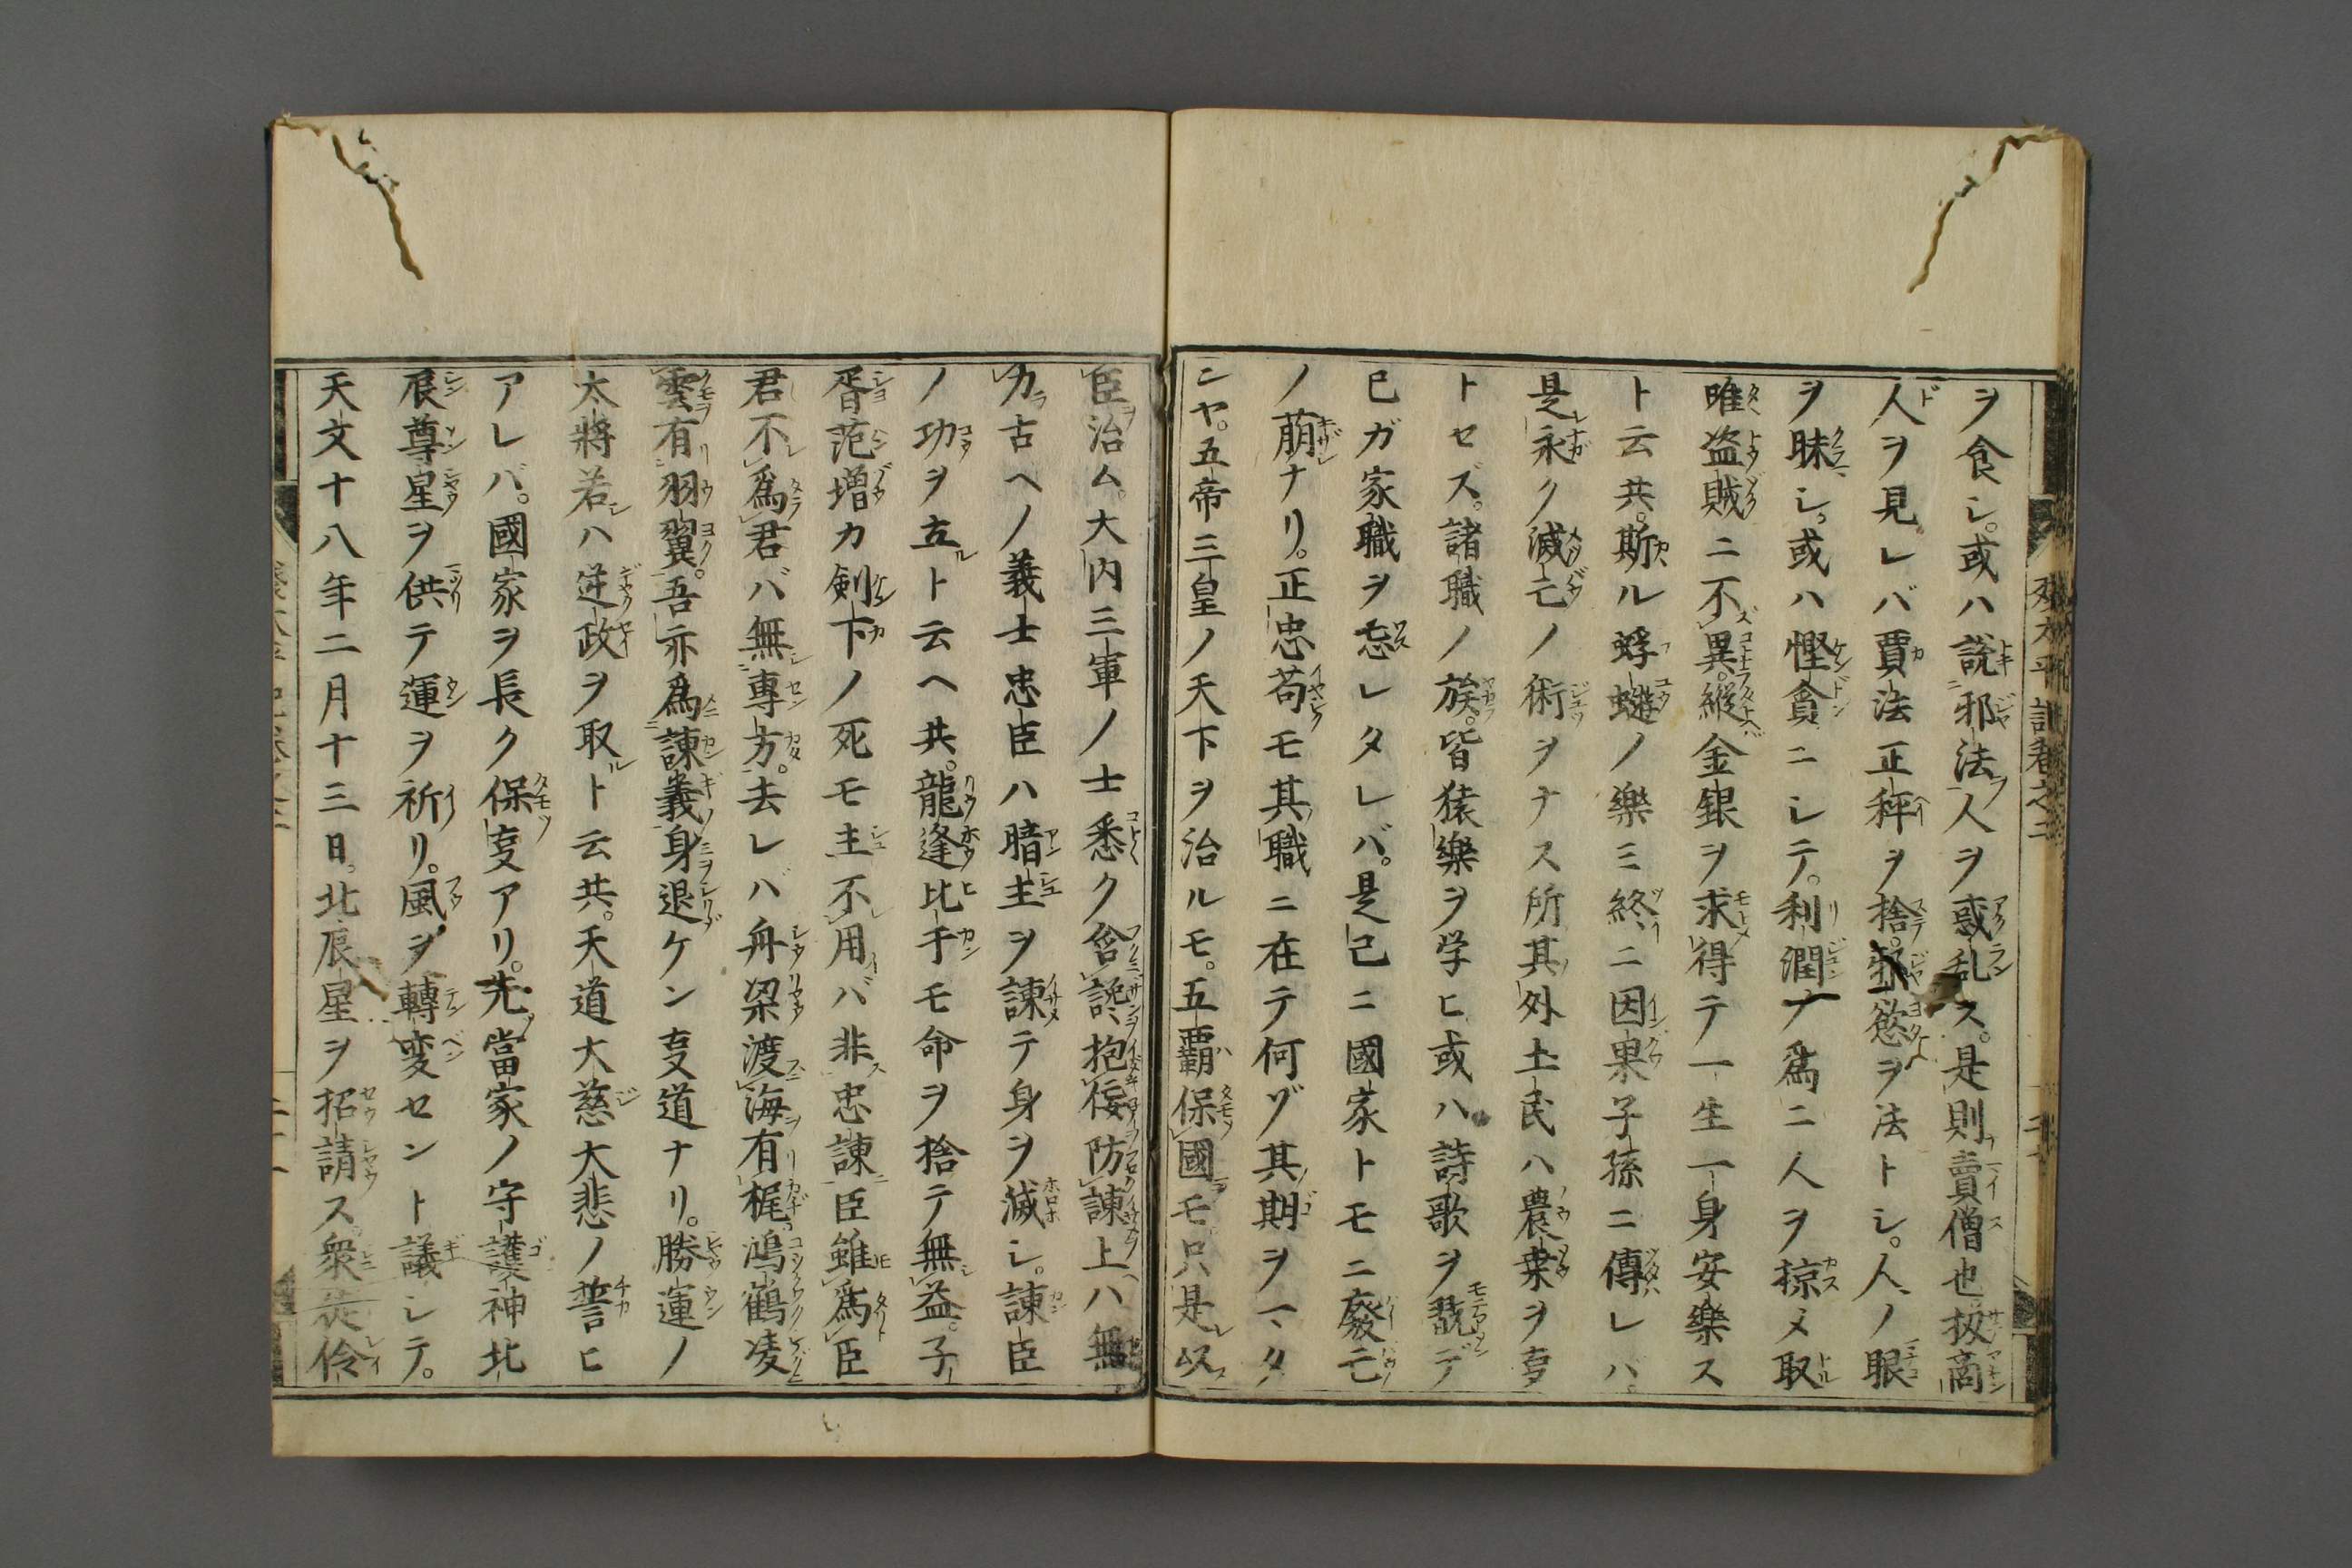 ヲ食シ。或ハ説邪法人ヲ惑乱ス。是則賣僧也扨商
人ヲ見レバ賈法正秤ヲ捨。邪慾ヲ法トシ。人ノ眼
ヲ昧シ。或ハ慳貪ニシテ。利潤ノ為ニ人ヲ掠メ取
唯盗賊ニ不異。縦金銀ヲ求得テ一生一身安樂ス
ト云共。斯ル蜉蝣ノ樂ミ終ニ因果子孫ニ傳レバ。
是永ク滅亡ノ術ヲナス所其外土民ハ農業ヲ事
トセズ。諸職ノ族。皆猿樂ヲ学ヒ或ハ詩歌ヲ翫デ
己ガ家職ヲ忘レタレバ。是己ニ國家トモニ廢亡
ノ萠ナリ。正忠苟モ其職ニ在テ何ゾ其期ヲマタ
ンヤ。五帝三皇ノ天下ヲ治ルモ。五覇保國モ只是以
臣治ム。大内三軍ノ士悉ク含讒抱佞防諫上ハ無
力古ヘノ義士忠臣ハ暗主ヲ諫テ身ヲ滅シ。諫臣
ノ功ヲ立ト云ヘ共。龍逢比干モ命ヲ捨テ無益。子
胥范増カ剣下ノ死モ主不用バ非忠諫臣雖為臣
君不為君バ無専方。去レバ舟梁渡海有梶。鴻鶴凌
雲有羽翼。吾亦為諫義身退ケン事道ナリ。勝運ノ
太將若ハ逆政ヲ取ト云共。天道大慈大悲ノ誓ヒ
アレバ。國家ヲ長ク保事アリ。先當家ノ守護神北
辰尊星ヲ供テ運ヲ祈リ。風ヲ轉変セント議シテ。
天文十八年二月十三日。北辰星ヲ招請ス。衆徒伶